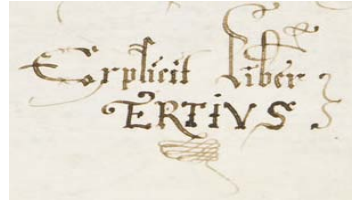 Explicit Liber
TERTIVS.